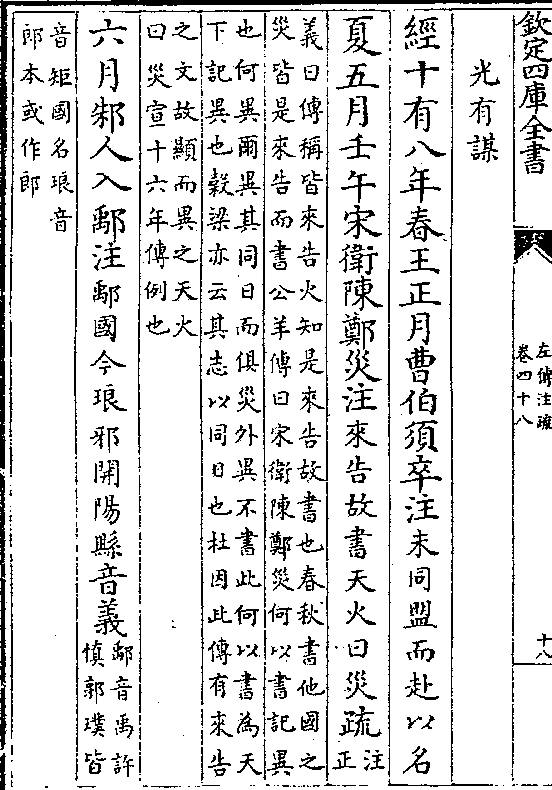 欽定四庫全書
左傳注疏
卷四十八
十八
光有謀
經十有八年春王正月曹伯須卒注未同盟而赴以名
夏五月壬午宋衛陳鄭災注來告故書天火曰災疏注
正
義曰傳稱皆來告火知是來告故書也春秋書他國之
災皆是來告而書公羊傳曰宋衛陳鄭災何以書記異
也何異爾異其同日而俱災外異不書此何以書為天
下記異也穀梁亦云其志以同日也杜因此傳有來告
之文故顯而異之天火
曰災宣十六年傳例也
六月邾人入鄅注鄅國今琅邪開陽縣音義鄅音禹許
慎郭璞皆
音矩國名琅音
郎本或作郎